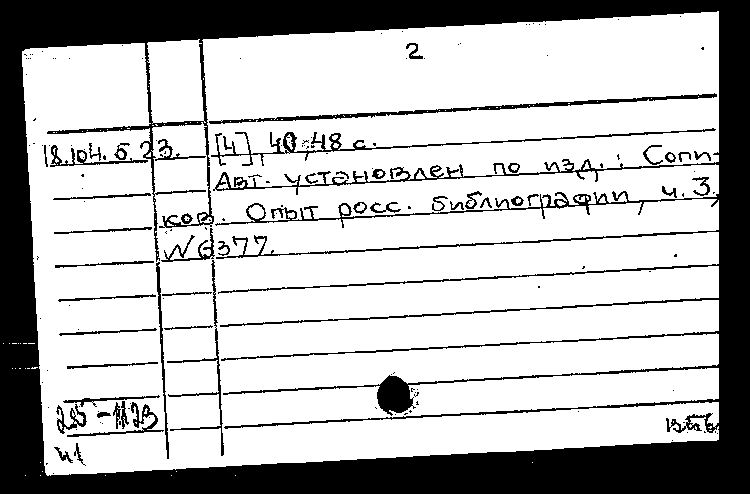 2
18.104.5.23. [4], 40, 48 с.
Авт. установлен по изд.: Сопи-
ков. Опыт росс. библиографии, ч. 3,
№ 6377.
ч1